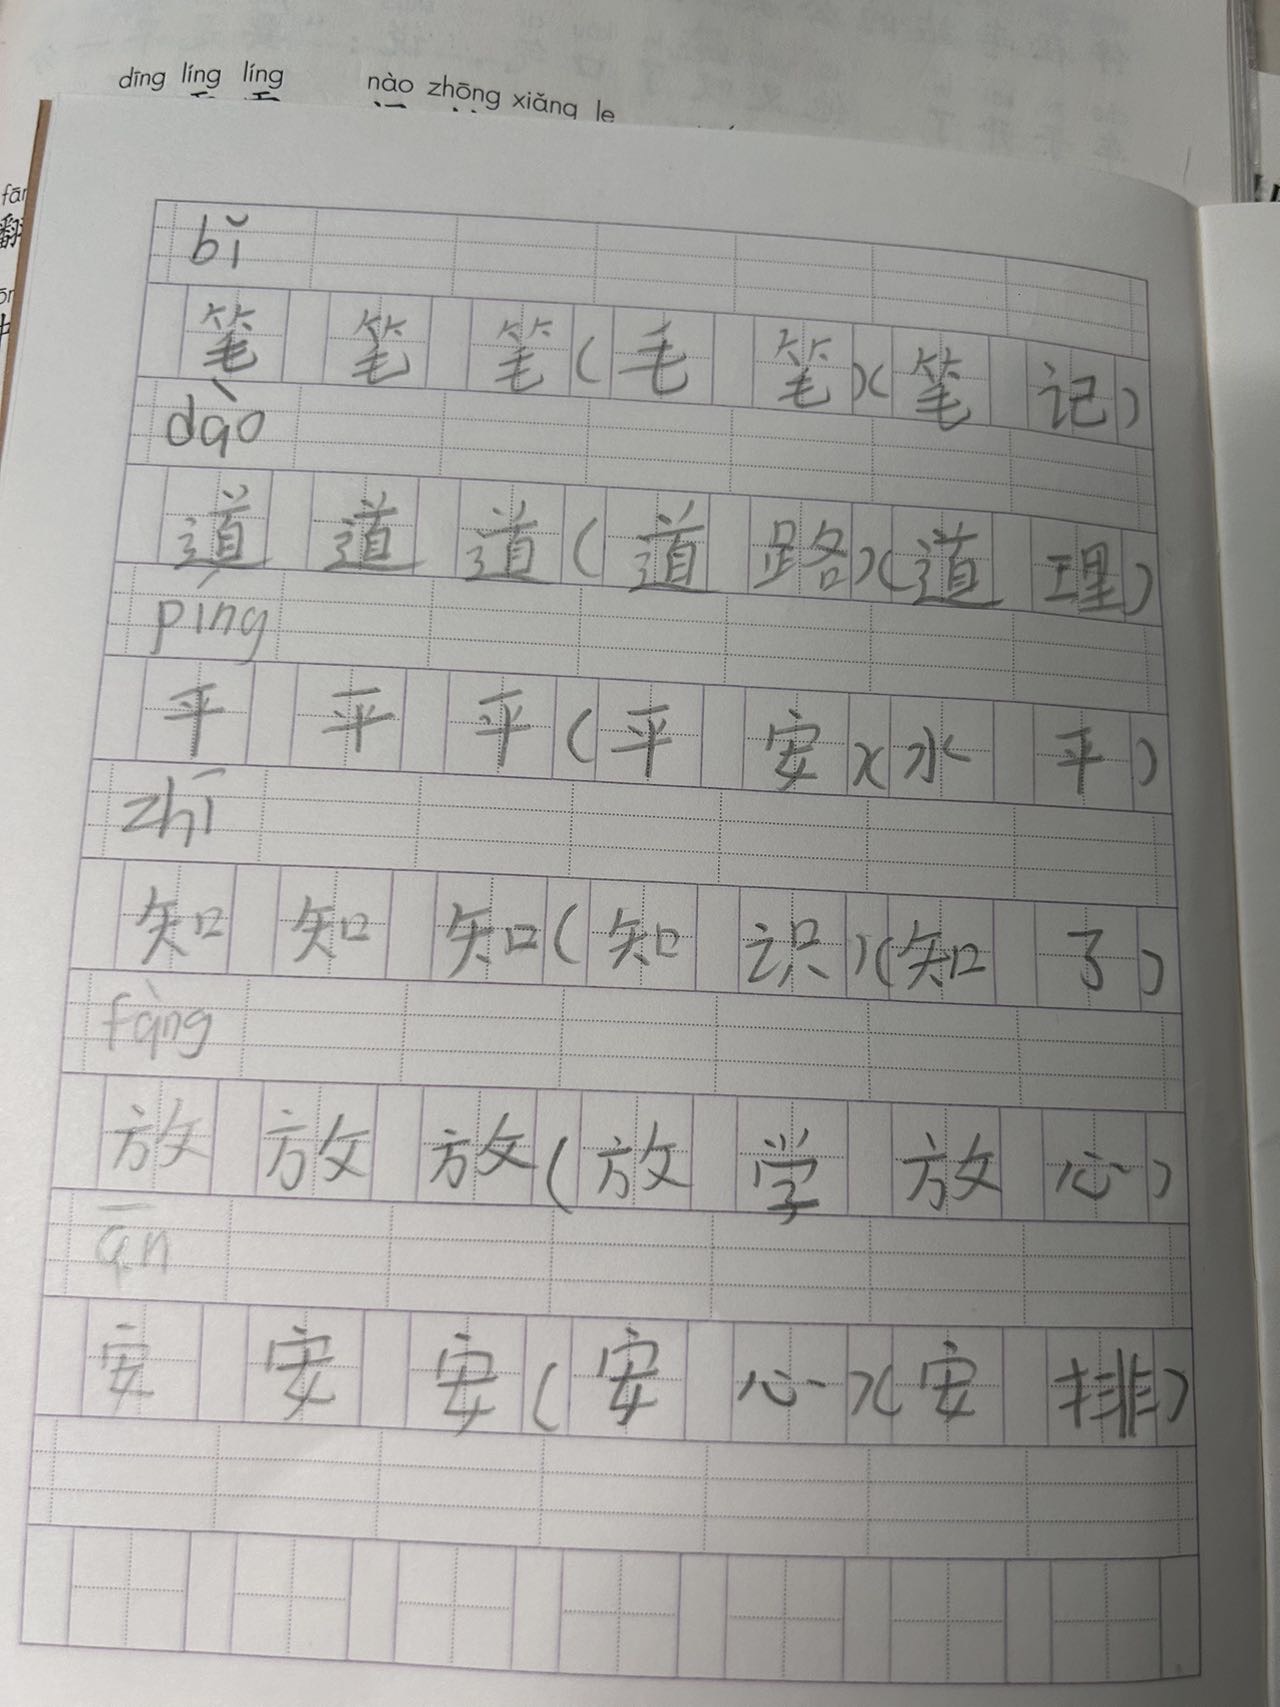 dīng líng líng nào zhōng xiǎng le
bǐ
笔 笔 笔(毛 笔)(笔 记)
dào
道 道 道(道 路)(道 理)
píng
平 平 平(平 安)(水 平)
zhī
知 知 知(知 识)(知 了)
fàng
放 放 放(放 学 放 心)
ān
安 安 安(安 心)(安 排)